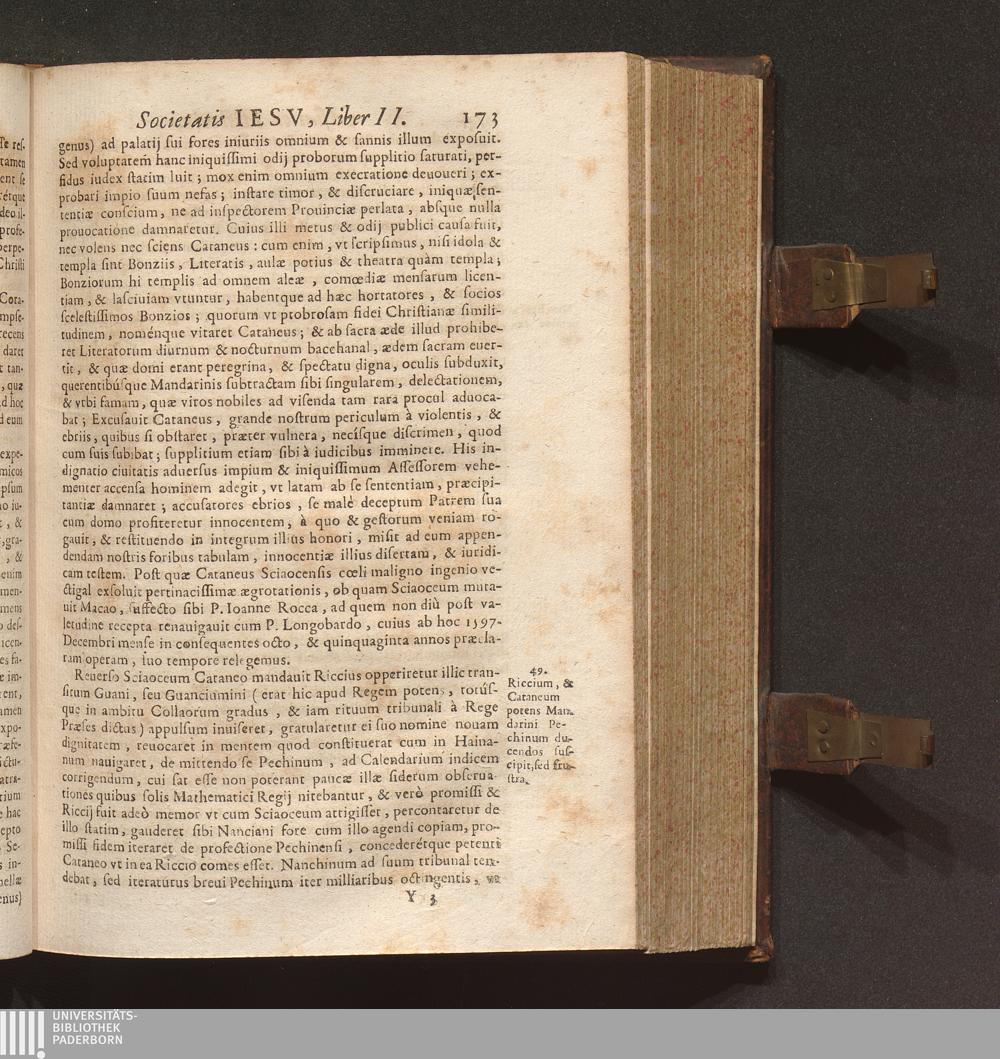 Societatis IESV, Liber II. 173
genus) ad palatij sui fores iniuriis omnium & sannis illum exposuit.
Sed voluptatem hanc iniquissimi odij proborum supplitio saturati, per-
fidus iudex statim luit; mox enim omnium execratione deuoueri; ex-
probari impio suum nefas; instare timor, & discruciare, iniquæ sen-
tentiæ conscium, ne ad inspectorem Prouinciæ perlata, absque nulla
prouocatione damnaretur. Cuius illi metus & odij publici causa fuit,
nec volens nec sciens Cataneus: cum enim, vt scripsimus, nisi idola &
templa sint Bonziis, Literatis, aulæ potius & theatra quàm templa;
Bonziorum hi templis ad omnem aleæ, comœdiæ mensarum licen-
tiam, & lasciuiam vtuntur, habentque ad hæc hortatores, & socios
scelestissimos Bonzios; quorum vt probrosam fidei Christianæ simili-
tudinem, noménque vitaret Cataneus; & ab sacra æde illud prohibe-
ret Literatorum diurnum & nocturnum bacchanal, ædem sacram euer-
tit, & quæ domi erant peregrina, & spectatu digna, oculis subduxit,
querentibúsque Mandarinis subtractam sibi singularem, delectationem,
& vrbi famam, quæ viros nobiles ad visenda tam rara procul aduoca-
bat; Excusauit Cataneus, grande nostrum periculum à violentis, &
ebriis, quibus si obstaret, præter vulnera, necísque discrimen, quod
cum suis subibat; supplitium etiam sibi à iudicibus imminere. His in-
dignatio ciuitatis aduersus impium & iniquissimum Assessorem vehe-
menter accensa hominem adegit, vt latam ab se sententiam, præcipi-
tantiæ damnaret; accusatores ebrios, se malè deceptum Patrem sua
cum domo profiteretur innocentem, à quo & gestorum veniam ro-
gauit, & restituendo in integrum illius honori, misit ad eum appen-
dendam nostris foribus tabulam, innocentiæ illius disertam, & iuridi-
cam testem. Post quæ Cataneus Sciaocensis cœli maligno ingenio ve-
ctigal exsoluit pertinacissimæ ægrotationis, ob quam Sciaoceum muta-
uit Macao, suffecto sibi P. Ioanne Rocca, ad quem non diù post va-
letudine recepta renauigauit cum P. Longobardo, cuius ab hoc 1597.
Decembri mense in consequentes octo, & quinquaginta annos præcla-
ram operam, suo tempore relegemus.
Reuerso Sciaoceum Cataneo mandauit Riccius opperiretur illic tran-
situm Guani, seu Guanciumini (erat hic apud Regem potens, totús-
que in ambitu Collaorum gradus, & iam rituum tribunali à Rege
Præses dictus) appulsum inuiseret, gratularetur ei suo nomine nouam
dignitatem, reuocaret in mentem quod constituerat cum in Haina-
num nauigaret, de mittendo se Pechinum, ad Calendarium indicem
corrigendum, cui sat esse non poterant paucæ illæ siderum obserua-
tiones quibus solis Mathematici Regij nitebantur, & verò promissi &
Riccij fuit adeò memor vt cum Sciaoceum attigisset, percontaretur de
illo statim, gauderet sibi Nanciani fore cum illo agendi copiam, pro-
missi fidem iteraret de profectione Pechinensi, concederétque petenti
Cataneo vt in ea Riccio comes esset. Nanchinum ad suum tribunal ten-
debat, sed iteraturus breui Pechinum iter milliaribus octingentis,
49.
Riccium, &
Cataneum
potens Man-
darini Pe-
chinum du-
cendos sus-
cipit, sed fru-
stra.
Y 3
UNIVERSITÄTS-
BIBLIOTHEK
PADERBORN